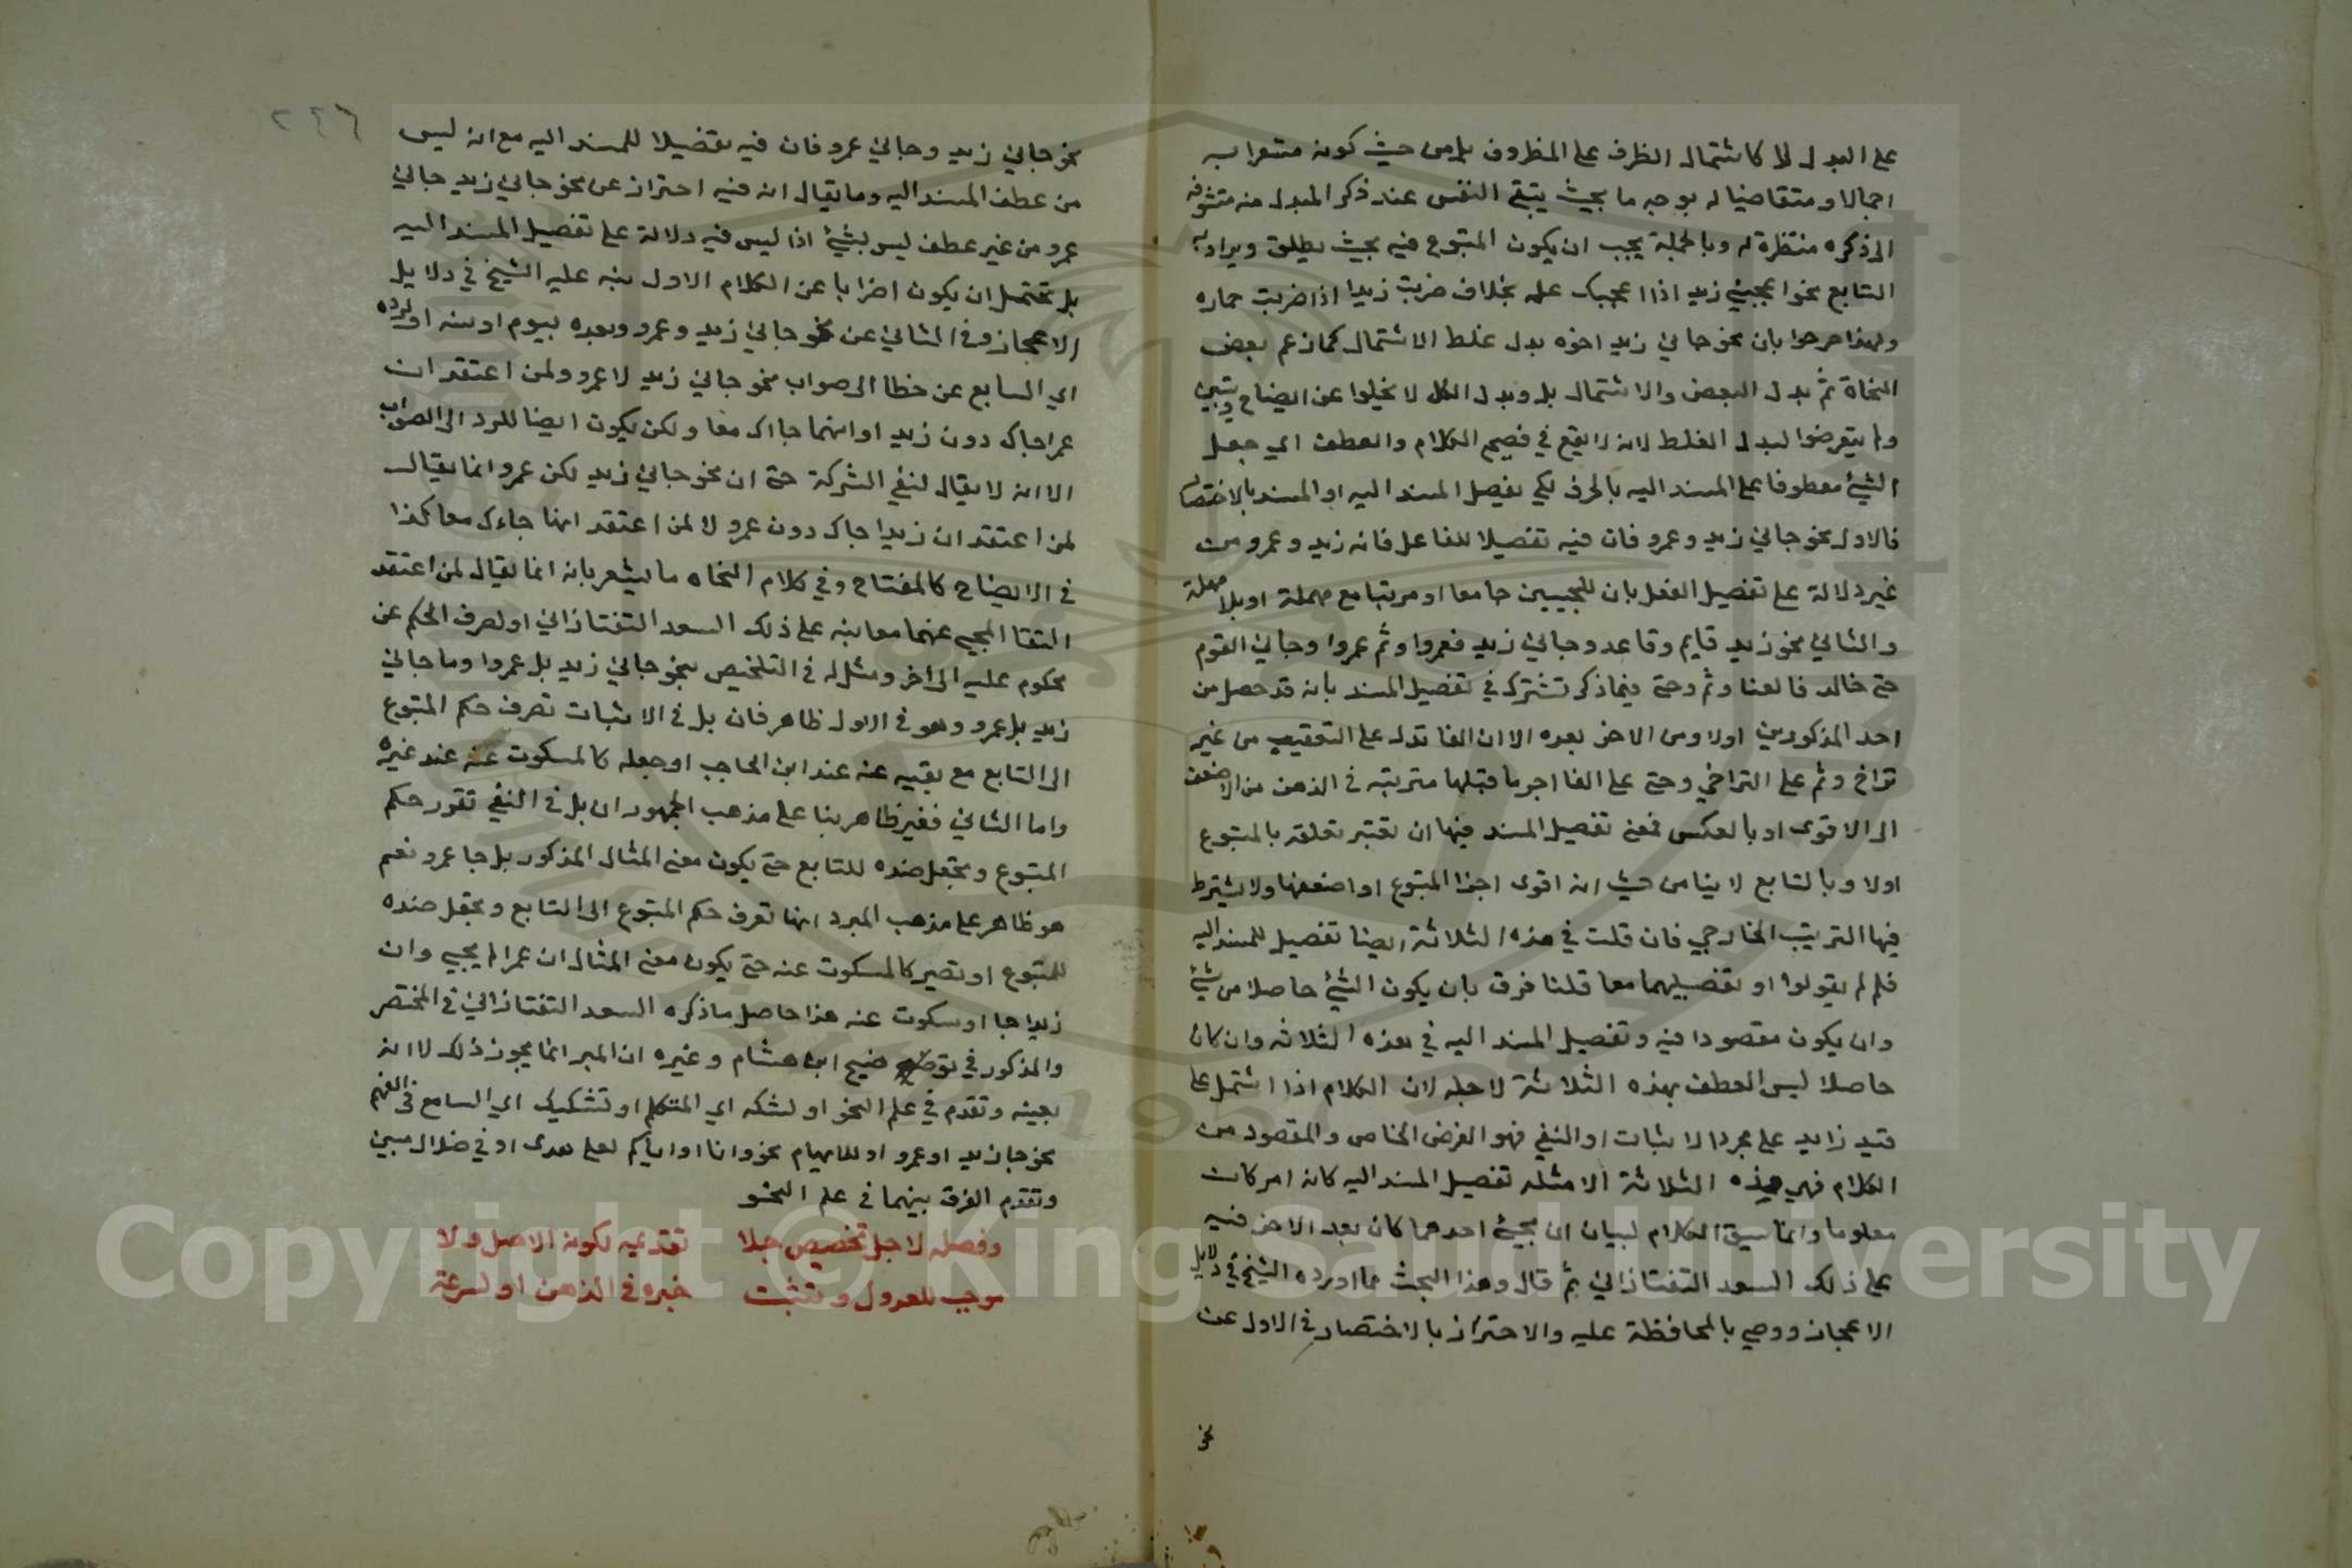 على البدل لا كاشتمال الظرف على المظروف بل من حيث كونه مشعرا به
اجمالا ومتقاضيا له بوجه ما بحيث يتبقى النفس عند ذكر المبدل منه متشوفة
الى ذكره منتظرة له وبالجملة يجب ان يكون المتبوع فيه بحيث يطلق ويراد به
التابع نحو اعجبني زيد اذا اعجبك علمه بخلاف ضربت زيدا اذا ضربت حماره
ولهذا صرحوا بان نحو جاني زيد اخوه بدل غلط لا اشتمال كما زعم بعض
النحاة ثم بدل البعض والاشتمال بل وبدل الكل لا يخلوا عن ايضاح وتبيين
ولم يتعرضوا لبدل الغلط لانه لا يقع في فصيح الكلام والعطف اي جعل
الشيئ معطوفا على المسند اليه بالحرف لكي يفصل المسند اليه او المسند بالاختصار
فالاول نحو جاني زيد وعمرو فان فيه تفصيلا للفاعل فانه زيد وعمرو من
غير دلالة على تفصيل الفعل بان المجيبين جا معا او مرتبا مع مهملة او بلا مهلة
والثاني نحو زيد قايم وقاعد وجاني زيد فعمروا وثم عمروا وجاني القوم
حتى خالد فالفا وثم وحتى فيما ذكر تشترك في تفصيل المسند بانه قد حصل من
احد المذكورين اولا ومن الاخر بعده الا ان الفا تدل على التعقيب من غير
تراخ وثم على التراخي وحتى على الفا اجر ما قبلها مترتبه في الذهن من الاضعف
الى الاقوى او بالعكس فمعنى تفصيل المسند فيها ان تعتبر تعلقه بالمتبوع
اولا وبالتابع ثانيا من حيث انه اقوى اجزا المتبوع او اضعفها ولا يشترط
فيها الترتيب الخارجي فان قلت في هذه الثلاثة ايضا تفصيل للمسند اليه
فلم لم يقولوا او تفصيلهما معا قلنا فرق بان يكون الشيئ حاصلا من شيئ
وان يكون مقصودا فيه وتفصيل المسند اليه في هذه الثلاثه وان كان
حاصلا ليس العطف بهذه الثلاثة لاجله لان الكلام اذا اشتمل على
قيد زايد على مجرد الاثبات او النفي فهو الغرض الخاص والمقصود من
الكلام فهي هذه الثلاثة الامثله تفصيل المسند اليه كانه امر كان
معلوما وانما سيق الكلام لبيان ان مجيئ احدهما كان بعد الاخر فنبه
على ذلك السعد التفتازاني ثم قال وهذا البحث مما اورده الشيخ في دلايل
الاعجاز ووصي بالمحافظة عليه والاحتراز بالاختصار في الاول عن
نحو
٢٢٦
نحو جاني زيد وجاني عمرو فان فيه تفضيلا للمسند اليه مع انه ليس
من عطف المسند اليه وما يقال انه فيه احتراز عن نحو جاني زيد جاني
عمرو من غير عطف ليس بشيئ اذا ليس فيه دلالة على تفصيل المسند اليه
بل تحتمل ان يكون اضرابا عن الكلام الاول نبه عليه الشيخ في دلايل
الاعجاز وفي الثاني عن نحو جاني زيد وعمرو وبعده بيوم او سنه او لرده
اي السابع عن خطا الى صواب نحو جاني زيد لا عمرو ولمن اعتقد ان
عمرا جاك دون زيد او انهما جااك معا ولكن يكون ايضا للرد الى الصواب
الا انه لا يقال لنفي الشركة حتى ان نحو جاني زيد لكن عمرو انما يقال
لمن اعتقد ان زيدا جاك دون عمرو لا لمن اعتقد انهما جاءك معا كذا
في الايضاح كالمفتاح وفي كلام النحاه ما يشعر بانه انما يقال لمن اعتقد
انتفا المجي عنهما معا نبه على ذلك السعد التفتازاني او لصرف الحكم عن
محكوم عليه الى اخر ومثل له في التلخيص بنحو جاني زيد بل عمروا وما جاني
زيد بل عمرو وهو في الاول ظاهر فان بل في الاثبات تصرف حكم المتبوع
الى التابع مع بقيه عنه عند ابن الحاجب او جعله كالمسكوت عنه عند غيره
واما الثاني فغير ظاهر بنا على مذهب الجمهور ان بل في النفي تقرر حكم
المتبوع وتجعل ضده للتابع حتى يكون معنى المثال المذكور بل جا عمرو نعم
هو ظاهر على مذهب المبرد انها تصرف حكم المتبوع الى التابع وتجعل ضده
للمتبوع او تصير كالمسكوت عنه حتى يكون معنى المثال ان عمرا لم يجيى وان
زيدا جا او سكوت عنه هذا حاصل ما ذكره السعد التفتازاني في المختصر
والمذكور في توضيح ابن هشام وغيره ان المبر انما يجوز ذلك لا انه
بعينه وتقدم في علم النحو او لشكه اي المتكلم او تشكيك اي السامع في الفهم
نحو جا زيد او عمرو او للابهام نحو وانا او اياكم لعلى هدى او في ضلال مبين
وتقدم الفرق بينهما في علم النحو
وفصله لاجل تخصيص جلا تقديمه لكونه الاصل ولا
موجب للعدول وتثبت خبره في الذهن او لسرعة
Copyright © King Saud University
1957